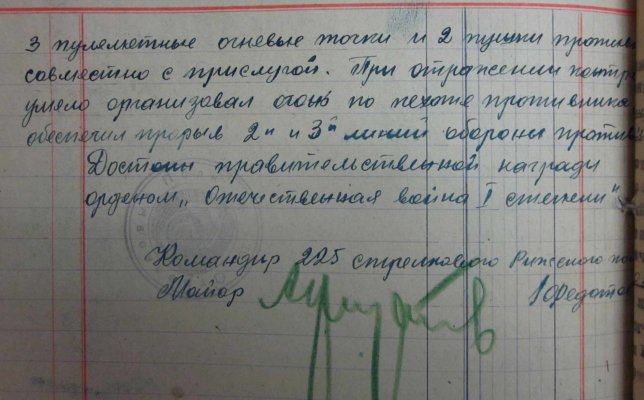 3 пулеметные огневые точки и 2 пушки против
совместно с прислугой. При отражении контр
умело организовал огонь по пехоте противника
обеспечил прорыв 2й и 3й линий обороны против
Достоин правительственной награды
орденом „Отечественная война I степени"
Командир 225 стрелкового Рижского по
Майор /Федотов